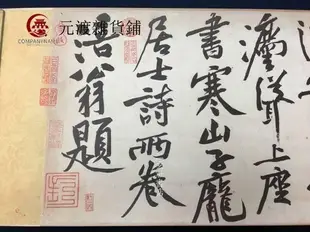 元渡雜貨鋪
COMPANYNAME
瀘聳上座
書寒山子龐
居士詩兩卷
涪翁題